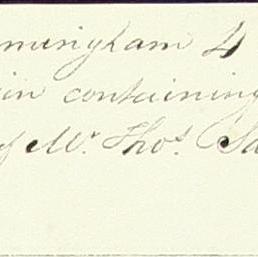 mingham 4
in containing
of Mr. Thos. Sa